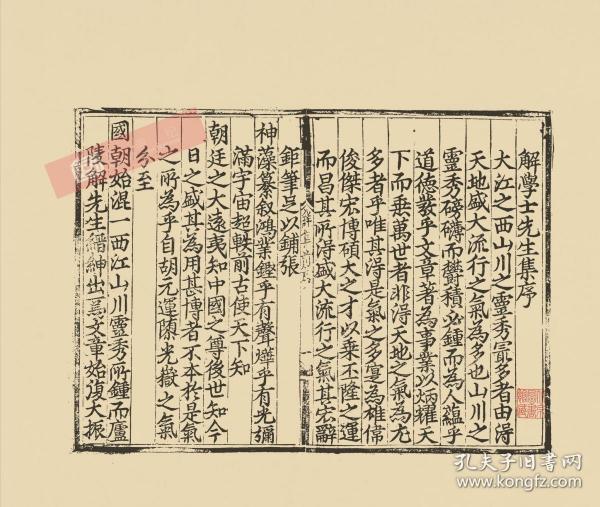 解學士先生集序
大江之西山川之靈秀㝡多者由淂
天地盛大流行之氣為多也山川之
靈秀磅礴而欝積必鍾而為人蘊乎
道徳發乎文章著為事業以炳燿天
下而垂萬世者非淂天地之氣為尤
多者乎唯其淂是氣之多寔為雄偉
俊傑宏博碩大之才以乗丕隆之運
而昌其所淂盛大流行之氣其宏辭
鉅筆足以鋪張
神藻纂敘鴻業鏗乎有聲燁乎有光彌
滿宇宙起軼前古使天下知
朝廷之大遠夷知中國之尊後世知今
日之盛其為用甚博者不本於是氣
之所為乎自胡元運陳光嶽之氣
分至
國朝始混一西江山川靈秀所鍾而廬
陵解先生縉紳出焉文章始復大振
孔夫子旧书网
www.kongfz.com